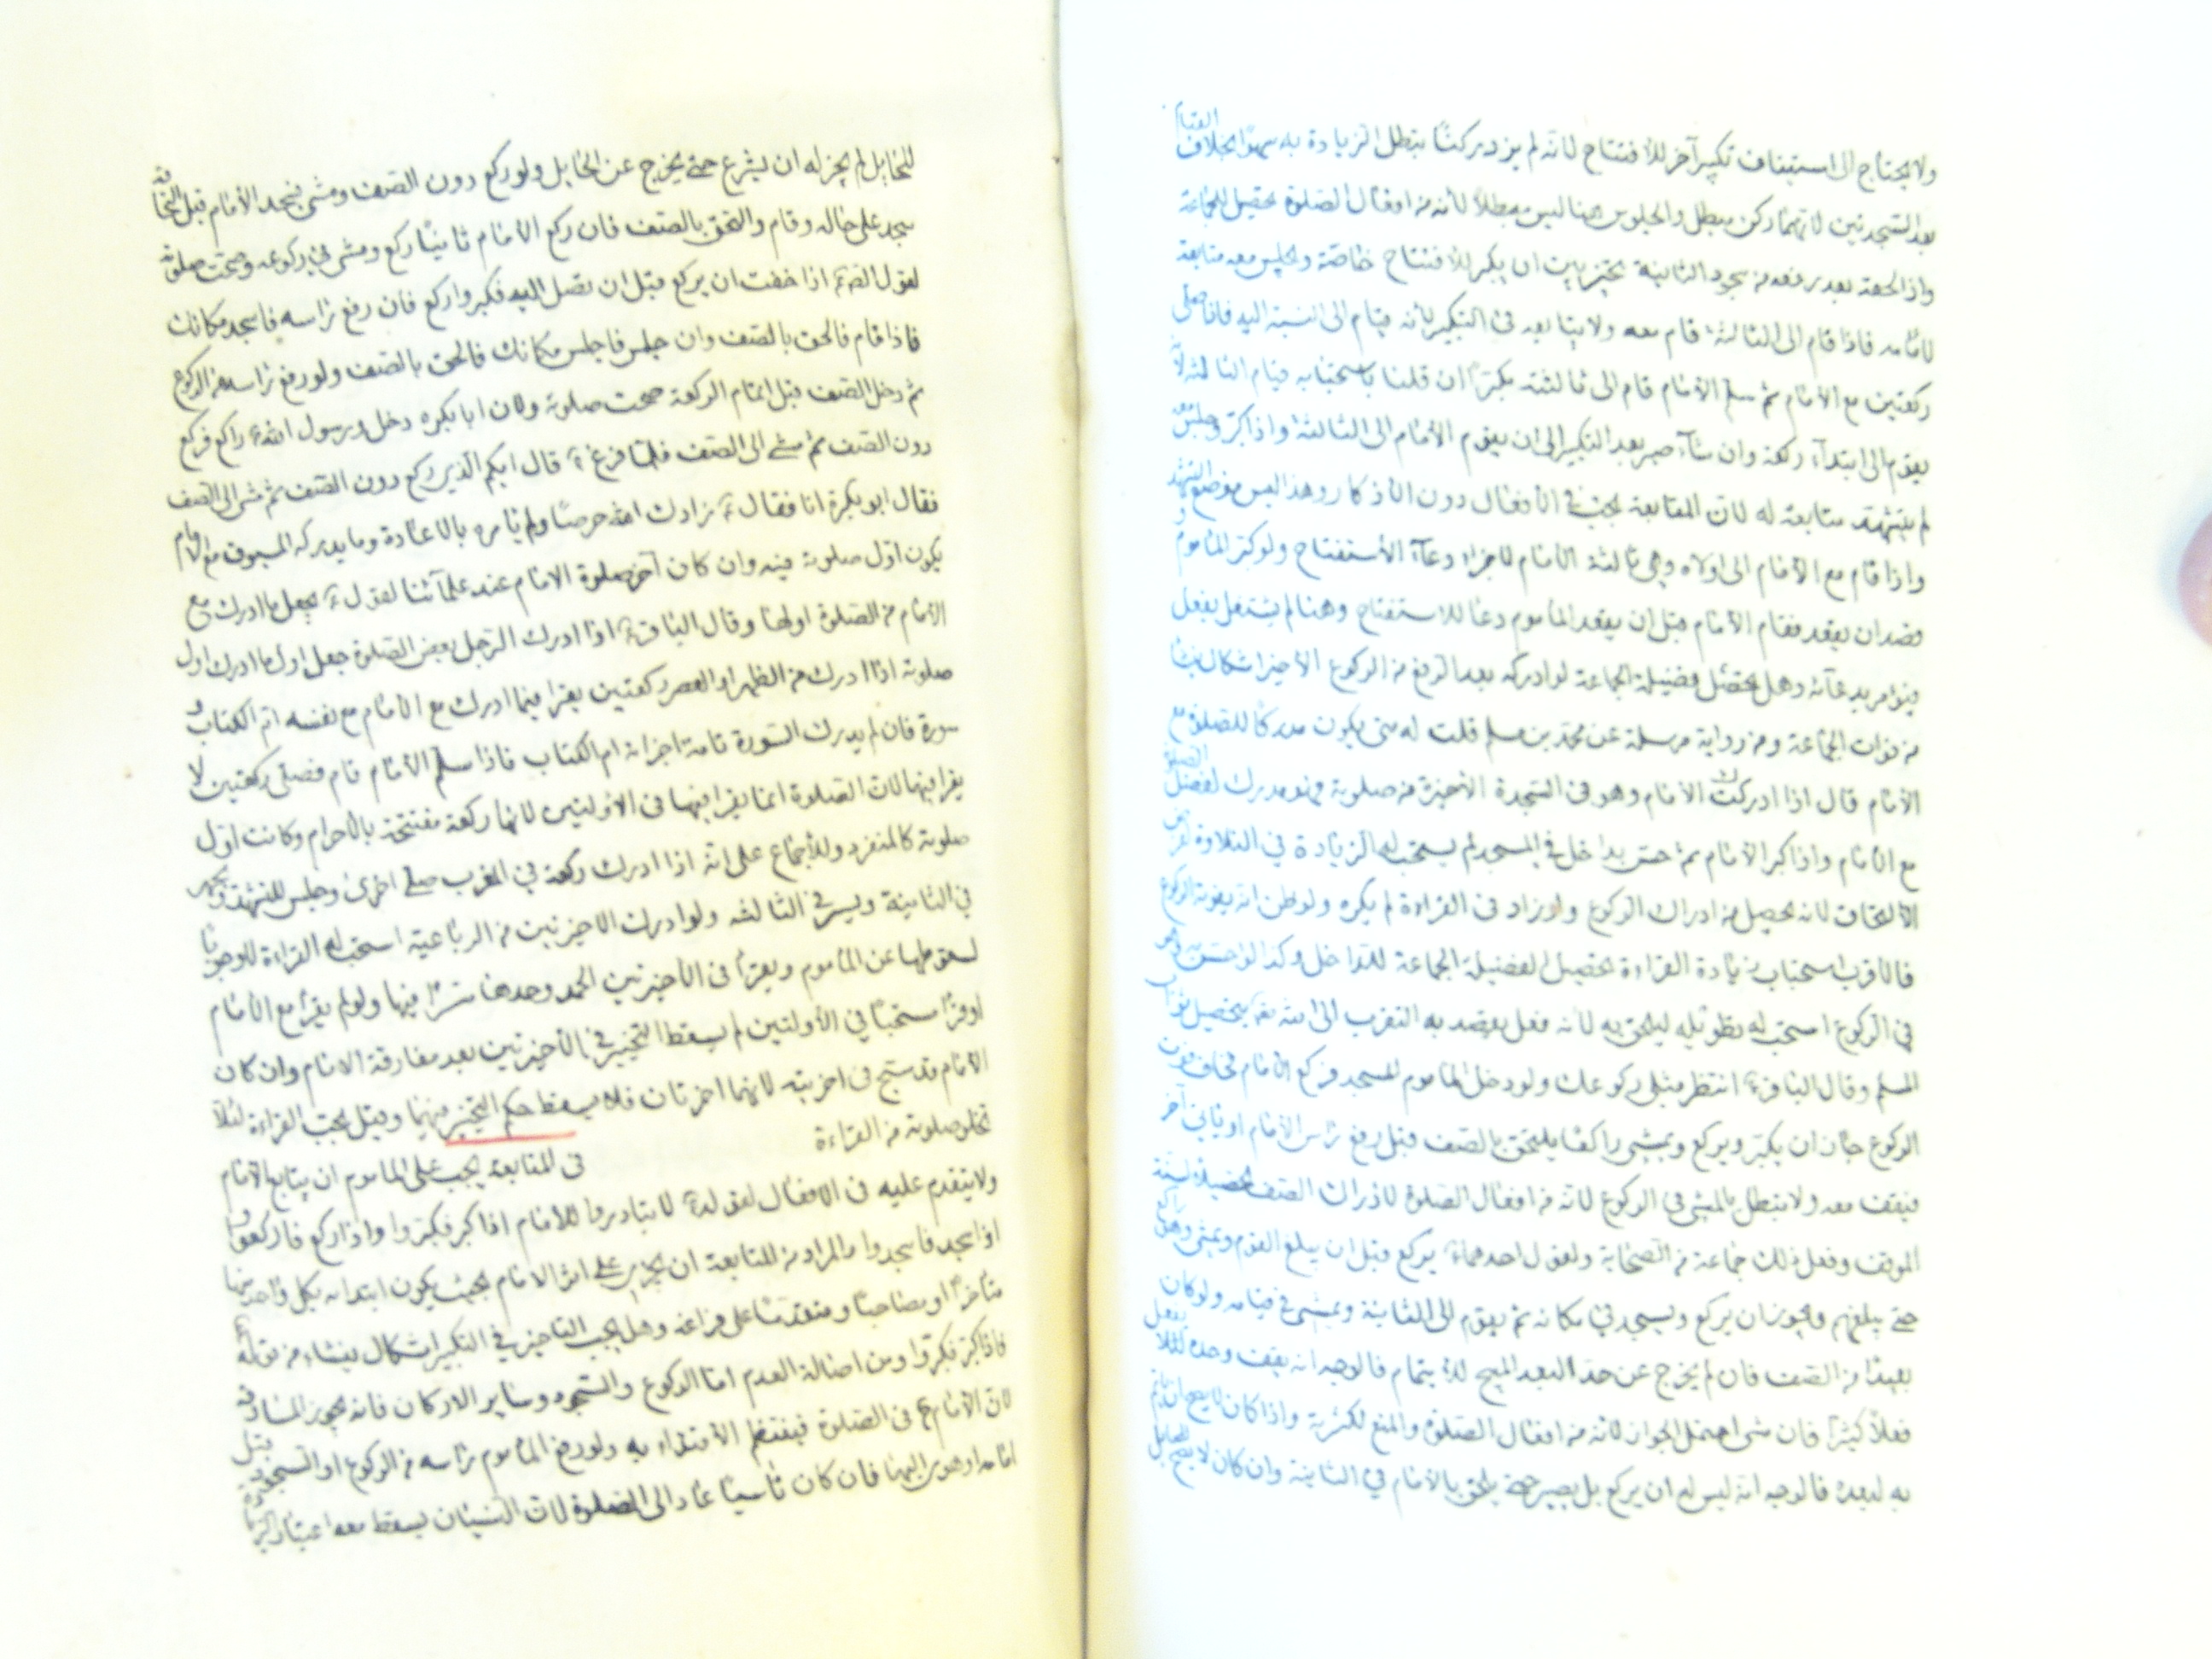 ولا يحتاج الى استيناف تكبير آخر للافتتاح لانه لم يزد ركنا تبطل الزيادة به سهوا بخلاف القيام
بعد السجدتين لانهما ركن مبطل والجلوس هنا ليس مبطلا لانه من افعال الصلوة لتحصيل الجماعة
واذا لحقه بعد رفعه من سجود الثانية تخير بين ان يكبر للافتتاح خاصة ويجلس معه متابعة
لامامه فاذا قام الى الثالثة قام معه ولا يتابعه في التكبير لانه قيام الى النسبة اليه فاذا صلى
ركعتين مع الامام ثم سلم الامام قام الى ثالثته مكبرا ان قلنا باستحبابه قيام الثالثة لانه
يقوم الى ابتداء ركعة وان شاء صبر بعد التكبير الى ان يقوم الامام الى الثالثة واذا كبر وجلس معه
لم يتشهد متابعة له لان المتابعة تجب في الافعال دون الاذكار وهذا ليس موضع التشهد
واذا قام مع الامام الى اولاه وهي ثالثة الامام فاجزاه دعاء الاستفتاح ولو كبر المأموم و
قصد ان يقعد فقام الامام قبل ان يقعد المأموم دعا للاستفتاح وهنا لم يشتغل بفعل
فيؤمر بدعائه وهل تحصل فضيلة الجماعة لو ادركه بعد الرفع من الركوع الاخير اشكال ينشأ
من فوات الجماعة ومن رواية مرسلة عن محمد بن مسلم قلت له متى يكون مدركا للصلوة مع
الامام قال اذا ادركت الامام وهو في السجدة الاخيرة من صلوته فهو مدرك لفضل الصلوة
مع الامام واذا كبر الامام ثم احس بداخل في المسجد لم يستحب له الزيادة في التلاوة
الالتحاق لانه يحصل من ادراك الركوع ولو زاد في القراءة لم يكره ولو ظن انه يفوته الركوع
فالاقرب استحباب زيادة القراءة لتحصيل الفضيلة الجماعة للداخل وكذا لو احس به وهو
في الركوع استحب له تطويله ليلحق به لانه فعل يقصد به التقرب الى الله تعالى بتحصيل ثواب
المسلم وقال الباقر ع انتظر مثلي ركوعك ولو دخل المأموم المسجد فركع الامام فخاف فوت
الركوع جاز ان يكبر ويركع ويمشي راكعا يلتحق بالصف قبل رفع رأس الامام او يأتي آخر
فيقف معه ولا تبطل بالمشي في الركوع لانه من افعال الصلوة لادراك الصف لفضيلة لسنة
الموقف وفعل ذلك جماعة من الصحابة ولقول احدهما ع يركع قبل ان يبلغ القوم ويمشي وهو راكع
حتى يبلغهم ويجوز ان يركع ويسجد في مكانه ثم يقوم الى الثانية ويمشي في قيامه ولو كان
بعيدا من الصف فان لم يخرج عن حد البعد المبيح للايتمام فالوجه انه يقف وحده لئلا يفعل
فعلا كثيرا فان مشى احتمل الجواز لانه من افعال الصلوة والمنع لكثرته واذا كان لا يصح ان يأتم
به لبعده فالوجه انه ليس له ان يركع بل يصبر حتى يلحق بالامام في الثانية وان كان لا يصح للحايل
للحايل لم يجز له ان يشرع حتى يخرج عن الحايل ولو ركع دون الصف ومشى فسجد الامام قبل التحاقه
سجد على حاله وقام والتحق بالصف فان ركع الامام ثانيا ركع ومشى في ركوعه وصحت صلوته
لقول الصادق ع اذا خفت ان يركع قبل ان تصل اليه فكبر واركع فان رفع رأسه فاسجد مكانك
فاذا قام فالحق بالصف وان جلس فاجلس مكانك فالحق بالصف ولو رفع رأسه من الركوع
ثم دخل الصف قبل اتمام الركعة صحت صلوته ولان ابا بكره دخل ورسول الله ع راكع فركع
دون الصف ثم مشى الى الصف فلما فرغ ع قال ايكم الذي ركع دون الصف ثم مشى الى الصف
فقال ابو بكرة انا فقال ع زادك الله حرصا ولم يأمره بالاعادة وما يدركه المسبوق مع الامام
يكون اول صلوته فيه وان كان آخر صلوة الامام عند علمائنا لقوله ع يجعل ما ادرك مع
الامام من الصلوة اولها وقال الباقر ع اذا ادرك الرجل بعض الصلوة جعل اول ما ادرك اول
صلوته اذا ادرك من الظهر او العصر ركعتين يقرا فيما ادرك مع الامام مع نفسه ام الكتاب و
سورة فان لم يدرك السورة تامة اجزاته ام الكتاب فاذا سلم الامام قام فصلى ركعتين لا
يقرا فيهما لان الصلوة انما يقرا فيها في الاولتين لانها ركعة مفتتحة بالاحرام وكانت اول
صلوته كالمنفرد وللاجماع على انه اذا ادرك ركعة في المغرب صلى اخرى وجلس للتشهد ويجهر
في الثانية ويسر في الثالثه ولو ادرك الاخيرتين من الرباعية استحب له القراءة للوجوبها
لسقوطها عن المأموم ويقرأ في الاخيرتين الحمد وحدها سرا فيها ولو لم يقرأ مع الامام
او قرأ مستحبا في الاولتين لم يسقط التخيير في الاخيرتين بعد مفارقة الامام وان كان
الامام قد سبح في اخرييه لانهما اخرتان فلا يسقط حكم التخيير فيهما وقيل تجب القراءة لئلا
تخلو صلوته من القراءة
في المتابعة يجب على المأموم ان يتابع الامام
ولا يتقدم عليه في الافعال لقوله ع لا تبادروا الامام اذا كبر فكبروا واذا ركع فاركعوا و
اذا سجد فاسجدوا والمراد من المتابعة ان يجري على اثر الامام بحيث يكون ابتدائه بكل واحد منها
متأخرا او مصاحبا ومتقدما على فراغه وهل يجب التأخير في التكبير اشكال ينشاء من قوله ع
فاذا كبر فكبروا ومن اصالة العدم اما الركوع والسجود وساير الاركان فانه يجوز المساوقه
لان الامام في الصلوة فينتظم الاقتداء به ولو رفع المأموم رأسه من الركوع او السجود قبل
امامه او هوى اليهما فان كان ناسيا عاد الى الصلوة لان النسيان يسقط معه اعتبار الزيادة